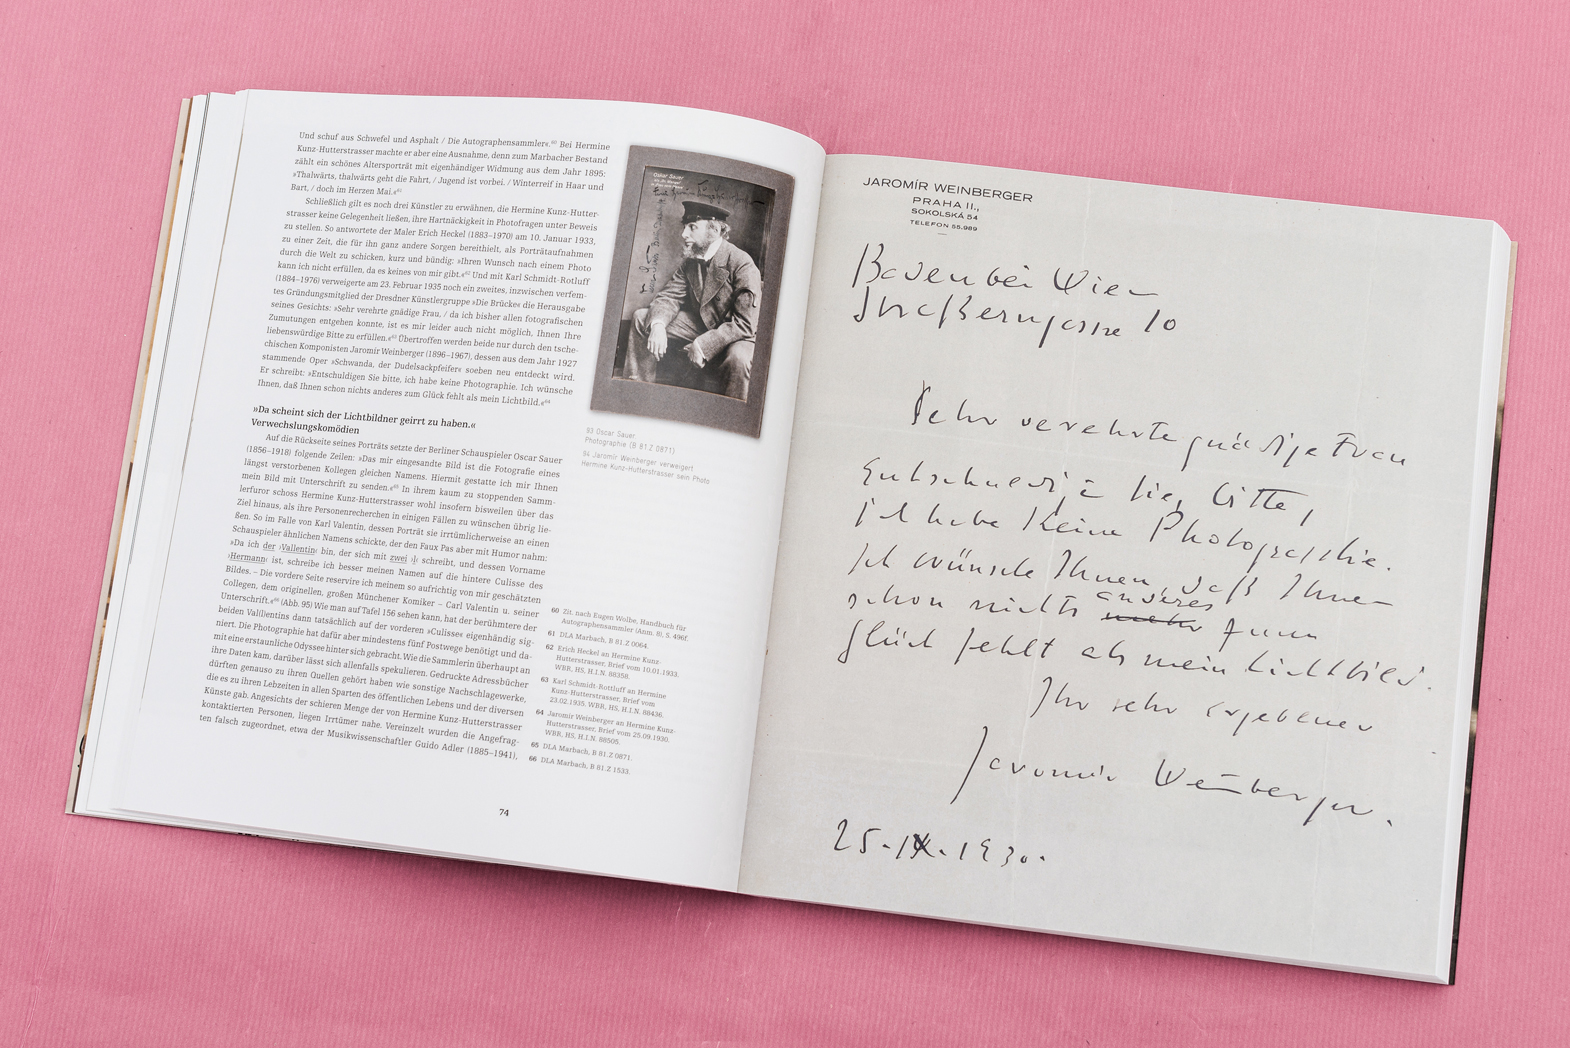 Und schuf aus Schwefel und Asphalt / Die Autographensammler«.⁶⁰ Bei Hermine
Kunz-Hutterstrasser machte er aber eine Ausnahme, denn zum Marbacher Bestand
zählt ein schönes Altersporträt mit eigenhändiger Widmung aus dem Jahr 1895:
»Thalwärts, thalwärts geht die Fahrt, / Jugend ist vorbei. / Winterreif in Haar und
Bart, / doch im Herzen Mai.«⁶¹
Schließlich gilt es noch drei Künstler zu erwähnen, die Hermine Kunz-Hutter-
strasser keine Gelegenheit ließen, ihre Hartnäckigkeit in Photofragen unter Beweis
zu stellen. So antwortete der Maler Erich Heckel (1883–1970) am 10. Januar 1933,
zu einer Zeit, die für ihn ganz andere Sorgen bereithielt, als Porträtaufnahmen
durch die Welt zu schicken, kurz und bündig: »Ihren Wunsch nach einem Photo
kann ich nicht erfüllen, da es keines von mir gibt.«⁶² Und mit Karl Schmidt-Rotluff
(1884–1976) verweigerte am 23. Februar 1935 noch ein zweites, inzwischen verfem-
tes Gründungsmitglied der Dresdner Künstlergruppe »Die Brücke« die Herausgabe
seines Gesichts: »Sehr verehrte gnädige Frau, / da ich bisher allen fotografischen
Zumutungen entgehen konnte, ist es mir leider auch nicht möglich, Ihnen Ihre
liebenswürdige Bitte zu erfüllen.«⁶³ Übertroffen werden beide nur durch den tsche-
chischen Komponisten Jaromir Weinberger (1896–1967), dessen aus dem Jahr 1927
stammende Oper »Schwanda, der Dudelsackpfeifer« soeben neu entdeckt wird.
Er schreibt: »Entschuldigen Sie bitte, ich habe keine Photographie. Ich wünsche
Ihnen, daß Ihnen schon nichts anderes zum Glück fehlt als mein Lichtbild.«⁶⁴
»Da scheint sich der Lichtbildner geirrt zu haben.«
Verwechslungskomödien
Auf die Rückseite seines Porträts setzte der Berliner Schauspieler Oscar Sauer
(1856–1918) folgende Zeilen: »Das mir eingesandte Bild ist die Fotografie eines
längst verstorbenen Kollegen gleichen Namens. Hiermit gestatte ich mir Ihnen
mein Bild mit Unterschrift zu senden.«⁶⁵ In ihrem kaum zu stoppenden Samm-
lerfuror schoss Hermine Kunz-Hutterstrasser wohl insofern bisweilen über das
Ziel hinaus, als ihre Personenrecherchen in einigen Fällen zu wünschen übrig lie-
ßen. So im Falle von Karl Valentin, dessen Porträt sie irrtümlicherweise an einen
Schauspieler ähnlichen Namens schickte, der den Faux Pas aber mit Humor nahm:
»Da ich der ›Vallentin‹ bin, der sich mit zwei ›l‹ schreibt, und dessen Vorname
›Hermann‹ ist, schreibe ich besser meinen Namen auf die hintere Culisse des
Bildes. – Die vordere Seite reservire ich meinem so aufrichtig von mir geschätzten
Collegen, dem originellen, großen Münchener Komiker – Carl Valentin u. seiner
Unterschrift.«⁶⁶ (Abb. 95) Wie man auf Tafel 156 sehen kann, hat der berühmtere der
beiden Val(l)entins dann tatsächlich auf der vorderen »Culisse« eigenhändig sig-
niert. Die Photographie hat dafür aber mindestens fünf Postwege benötigt und da-
mit eine erstaunliche Odyssee hinter sich gebracht. Wie die Sammlerin überhaupt an
ihre Daten kam, darüber lässt sich allenfalls spekulieren. Gedruckte Adressbücher
dürften genauso zu ihren Quellen gehört haben wie sonstige Nachschlagewerke,
die es zu ihren Lebzeiten in allen Sparten des öffentlichen Lebens und der diversen
Künste gab. Angesichts der schieren Menge der von Hermine Kunz-Hutterstrasser
kontaktierten Personen, liegen Irrtümer nahe. Vereinzelt wurden die Angefrag-
ten falsch zugeordnet, etwa der Musikwissenschaftler Guido Adler (1885–1941),
Oskar Sauer
93 Oscar Sauer
Photographie (B 81.Z 0871)
94 Jaromir Weinberger verweigert
Hermine Kunz-Hutterstrasser sein Photo
60 Zit. nach Eugen Wolbe, Handbuch für
Autographensammler (Anm. 8), S. 496f.
61 DLA Marbach, B 81.Z 0064.
62 Erich Heckel an Hermine Kunz-
Hutterstrasser, Brief vom 10.01.1933.
WBR, HS, H.I.N. 88358.
63 Karl Schmidt-Rottluff an Hermine
Kunz-Hutterstrasser, Brief vom
23.02.1935. WBR, HS, H.I.N. 88436.
64 Jaromir Weinberger an Hermine Kunz-
Hutterstrasser, Brief vom 25.09.1930.
WBR, HS, H.I.N. 88505.
65 DLA Marbach, B 81.Z 0871.
66 DLA Marbach, B 81.Z 1533.
74
JAROMÍR WEINBERGER
PRAHA II.,
SOKOLSKÁ 54
TELEFON 55.989
Baden bei Wien
Straßerngasse 10
Sehr verehrte gnädige Frau
Entschuldigen Sie, bitte,
ich habe keine Photographie.
Ich wünsche Ihnen, daß Ihnen
anderes
schon nichts mehr zum
Glück fehlt als mein Lichtbild.
Ihr sehr ergebener
Jaromír Weinberger.
25.IX.1930.